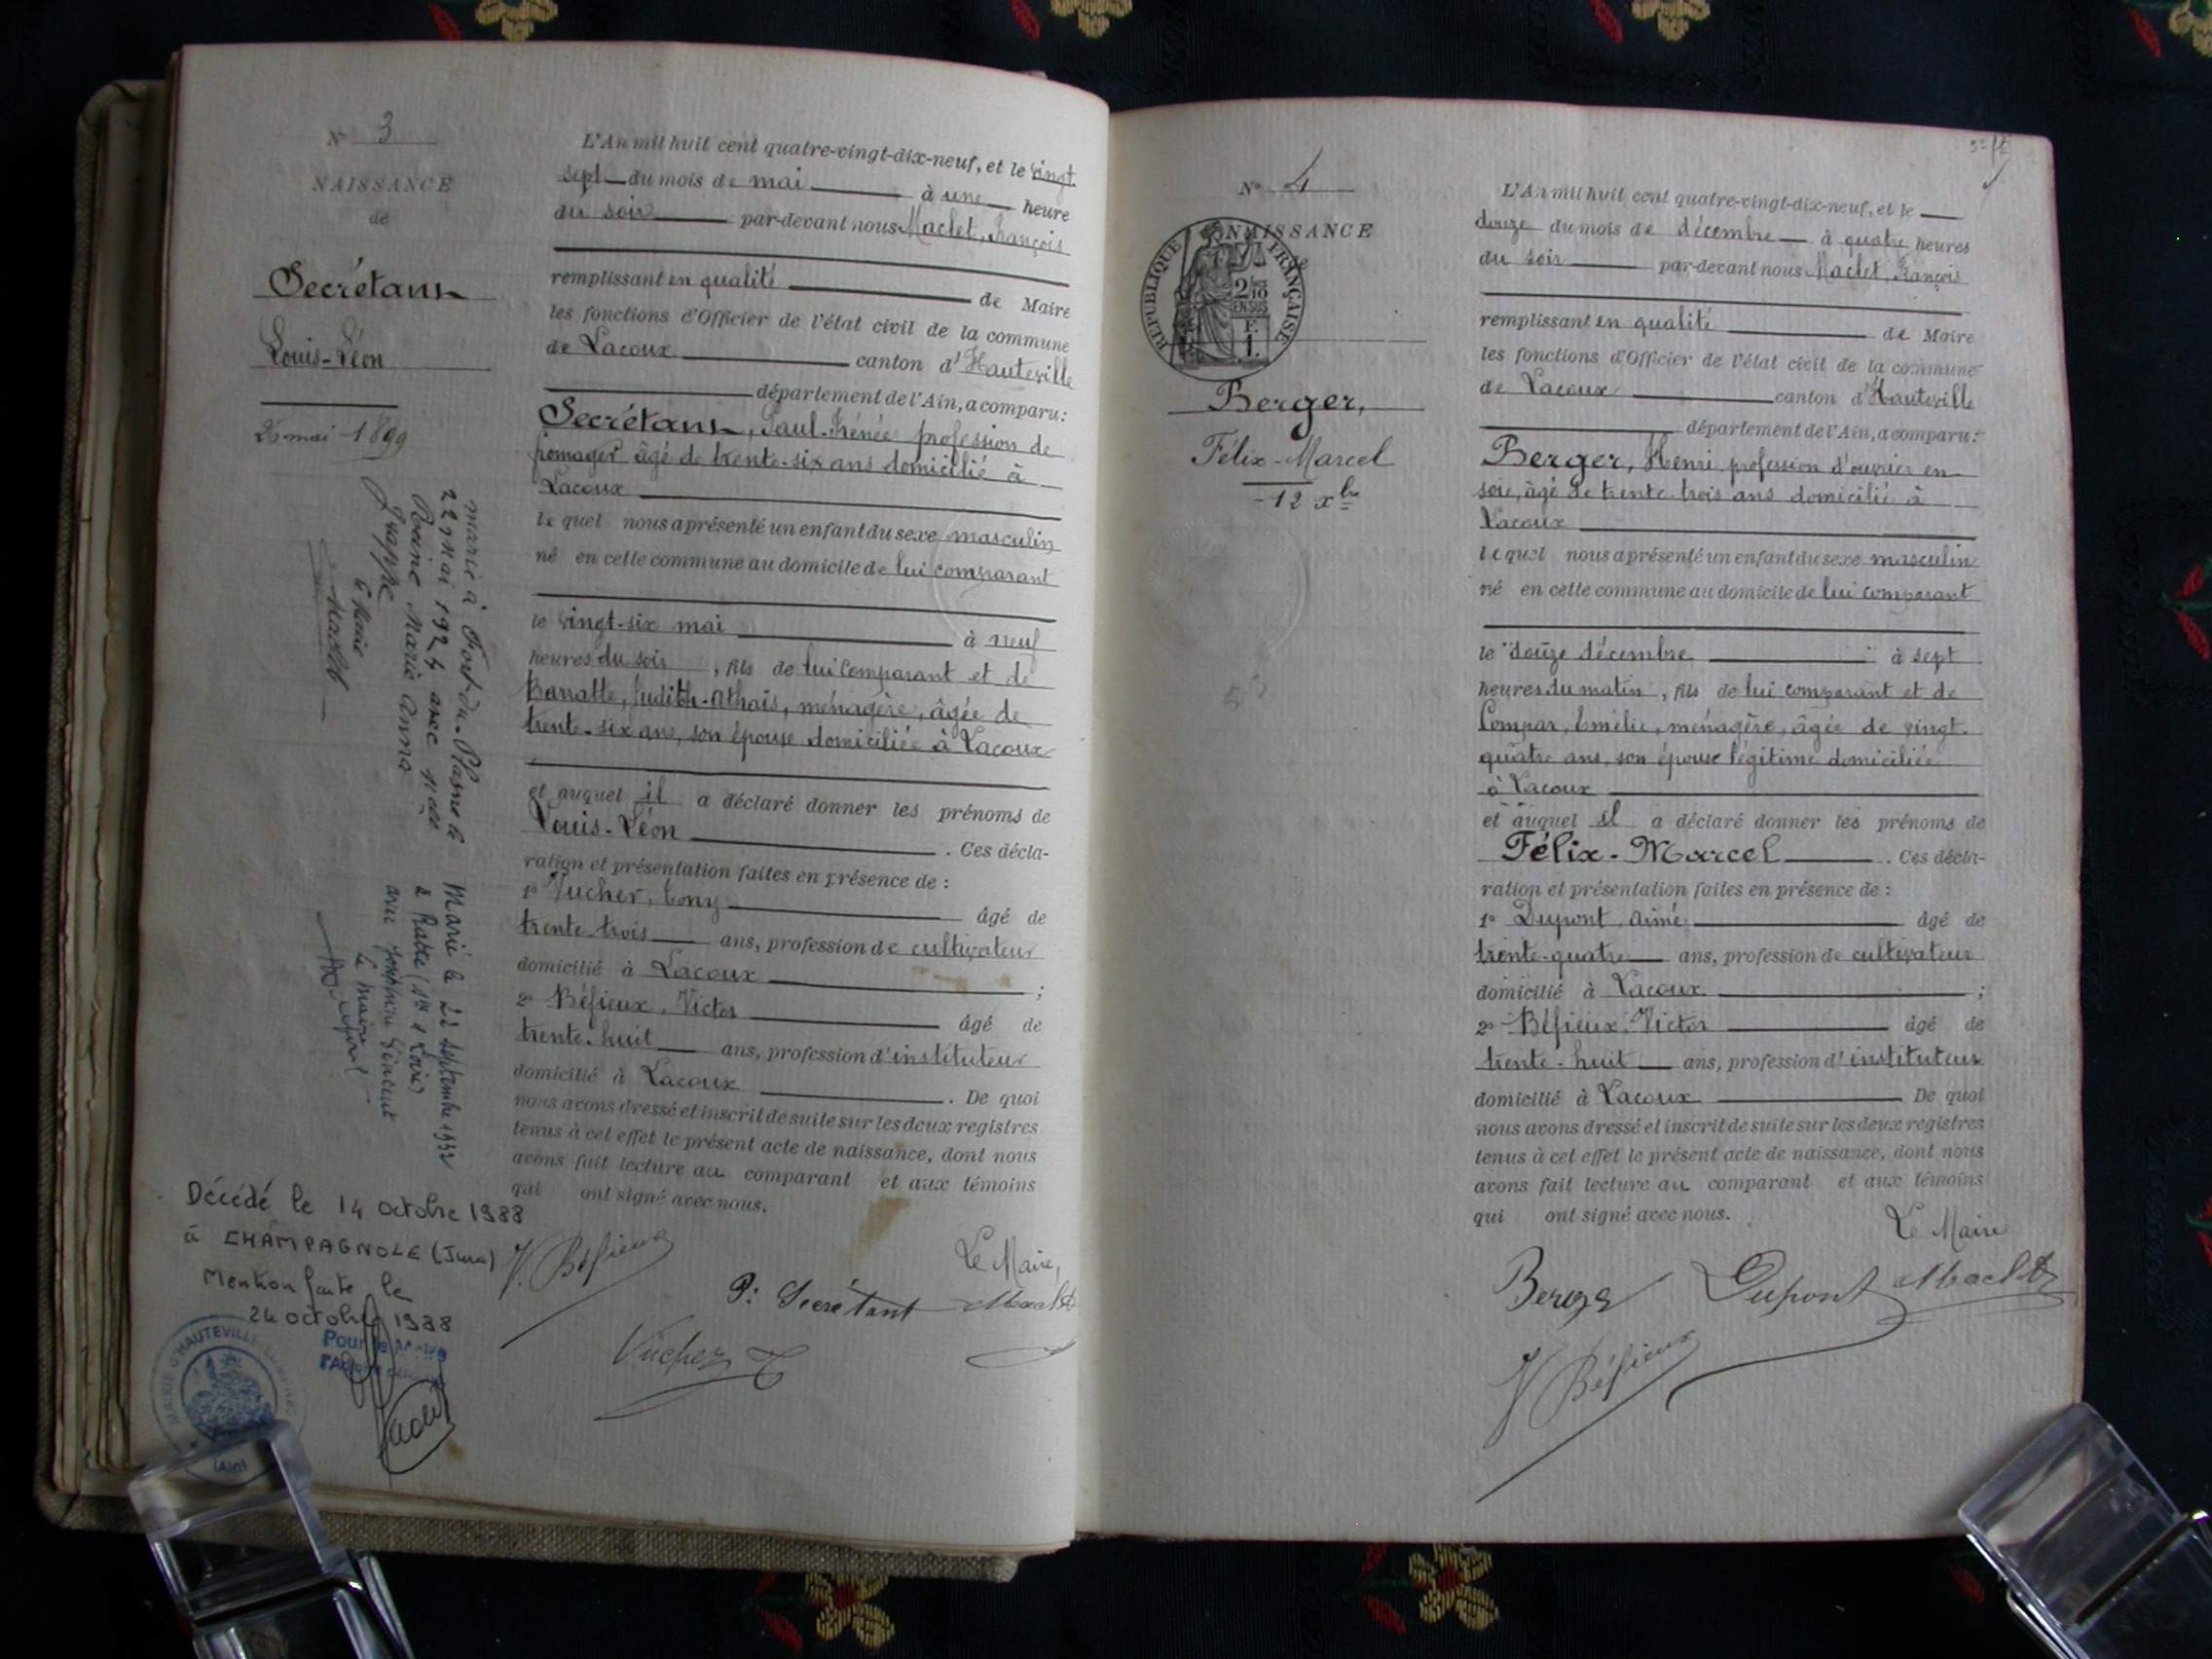 N° 3
NAISSANCE
de
Secrétant
Louis-Léon
26 mai 1899
marié à Fort-du-Plasne le
22 mai 1924 avec
Marie Anna
le Maire
Maclet
Marié le 22 septembre 1932
à
avec Joséphine Vincent
le maire
Décédé le 14 octobre 1988
à CHAMPAGNOLE (Jura)
Mention faite le
24 octobre 1988
Pour le Maire
MAIRIE D'HAUTEVILLE
(Ain)
L'An mil huit cent quatre-vingt-dix-neuf, et le vingt
sept du mois de mai à une heure
du soir par-devant nous Maclet, François
remplissant en qualité de Maire
les fonctions d'Officier de l'état civil de la commune
de Lacoux canton d'Hauteville
département de l'Ain, a comparu:
Secrétant, Paul-Irénée profession de
fromager âgé de trente-six ans domicilié à
Lacoux
lequel nous a présenté un enfant du sexe masculin
né en cette commune au domicile de lui comparant
le vingt-six mai à neuf
heures du soir, fils de lui comparant et de
Judith-Athaïs, ménagère, âgée de
trente-six ans, son épouse domiciliée à Lacoux
et auquel il a déclaré donner les prénoms de
Louis-Léon. Ces décla-
ration et présentation faites en présence de :
1° Vucher, Tony âgé de
trente-trois ans, profession de cultivateur
domicilié à Lacoux ;
2° Béfieux, Victor âgé de
trente-huit ans, profession d'instituteur
domicilié à Lacoux. De quoi
nous avons dressé et inscrit de suite sur les deux registres
tenus à cet effet le présent acte de naissance, dont nous
avons fait lecture au comparant et aux témoins
qui ont signé avec nous.
Le Maire,
V. Béfieux
P. Secrétant Maclet
Vucher T
N° 4
NAISSANCE
de
RÉPUBLIQUE FRANÇAISE
2/10
EN SUS
F.
1.
Berger,
Félix-Marcel
12 xbre
L'An mil huit cent quatre-vingt-dix-neuf, et le
douze du mois de décembre à quatre heures
du soir par-devant nous Maclet, François
remplissant en qualité de Maire
les fonctions d'Officier de l'état civil de la commune
de Lacoux canton d'Hauteville
département de l'Ain, a comparu:
Berger, Henri profession d'ouvrier en
soie, âgé de trente-trois ans domicilié à
Lacoux
lequel nous a présenté un enfant du sexe masculin
né en cette commune au domicile de lui comparant
le douze décembre à sept
heures du matin, fils de lui comparant et de
Compar, Emélie, ménagère, âgée de vingt-
quatre ans, son épouse légitime domiciliée
à Lacoux
et auquel il a déclaré donner les prénoms de
Félix-Marcel. Ces décla-
ration et présentation faites en présence de :
1° Dupont, Aimé âgé de
trente-quatre ans, profession de cultivateur
domicilié à Lacoux ;
2° Béfieux, Victor âgé de
trente-huit ans, profession d'instituteur
domicilié à Lacoux De quoi
nous avons dressé et inscrit de suite sur les deux registres
tenus à cet effet le présent acte de naissance, dont nous
avons fait lecture au comparant et aux témoins
qui ont signé avec nous.
Le Maire
Berger Dupont Maclet
V Béfieux